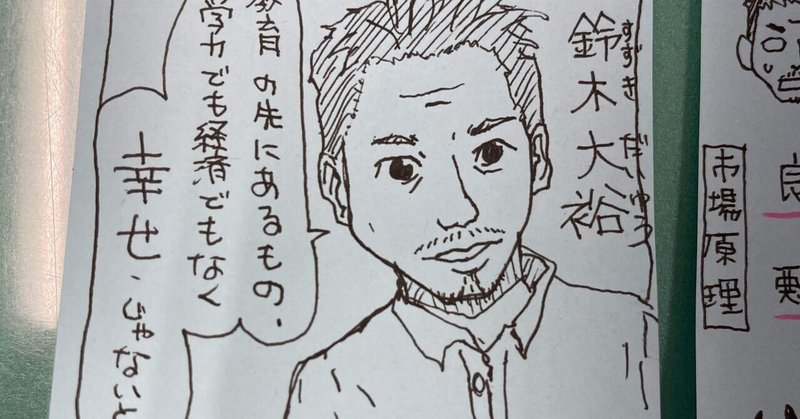 鈴木大裕
すずき だいゆう
教育の先にあるもの、
学力でも経済でもなく
幸せ、じゃないと
市場原理
良